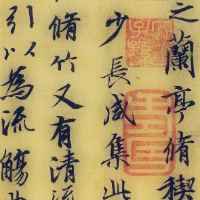 之蘭亭脩禊
少長咸集此
脩竹又有清流
引以為流觴